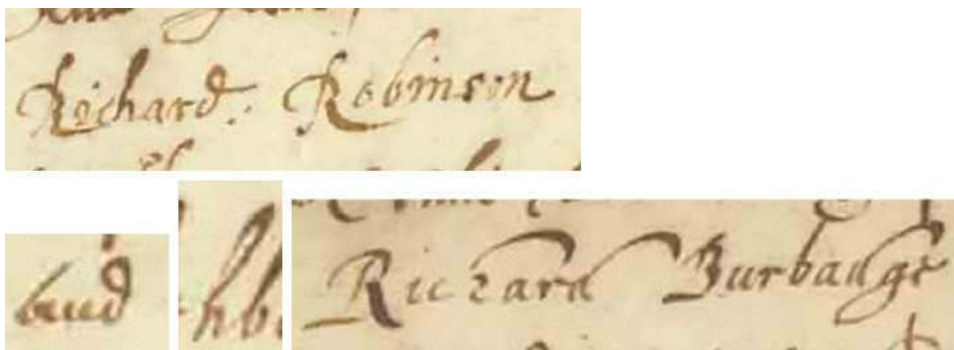 Richard. Robinson
and hb Richard Burbadge